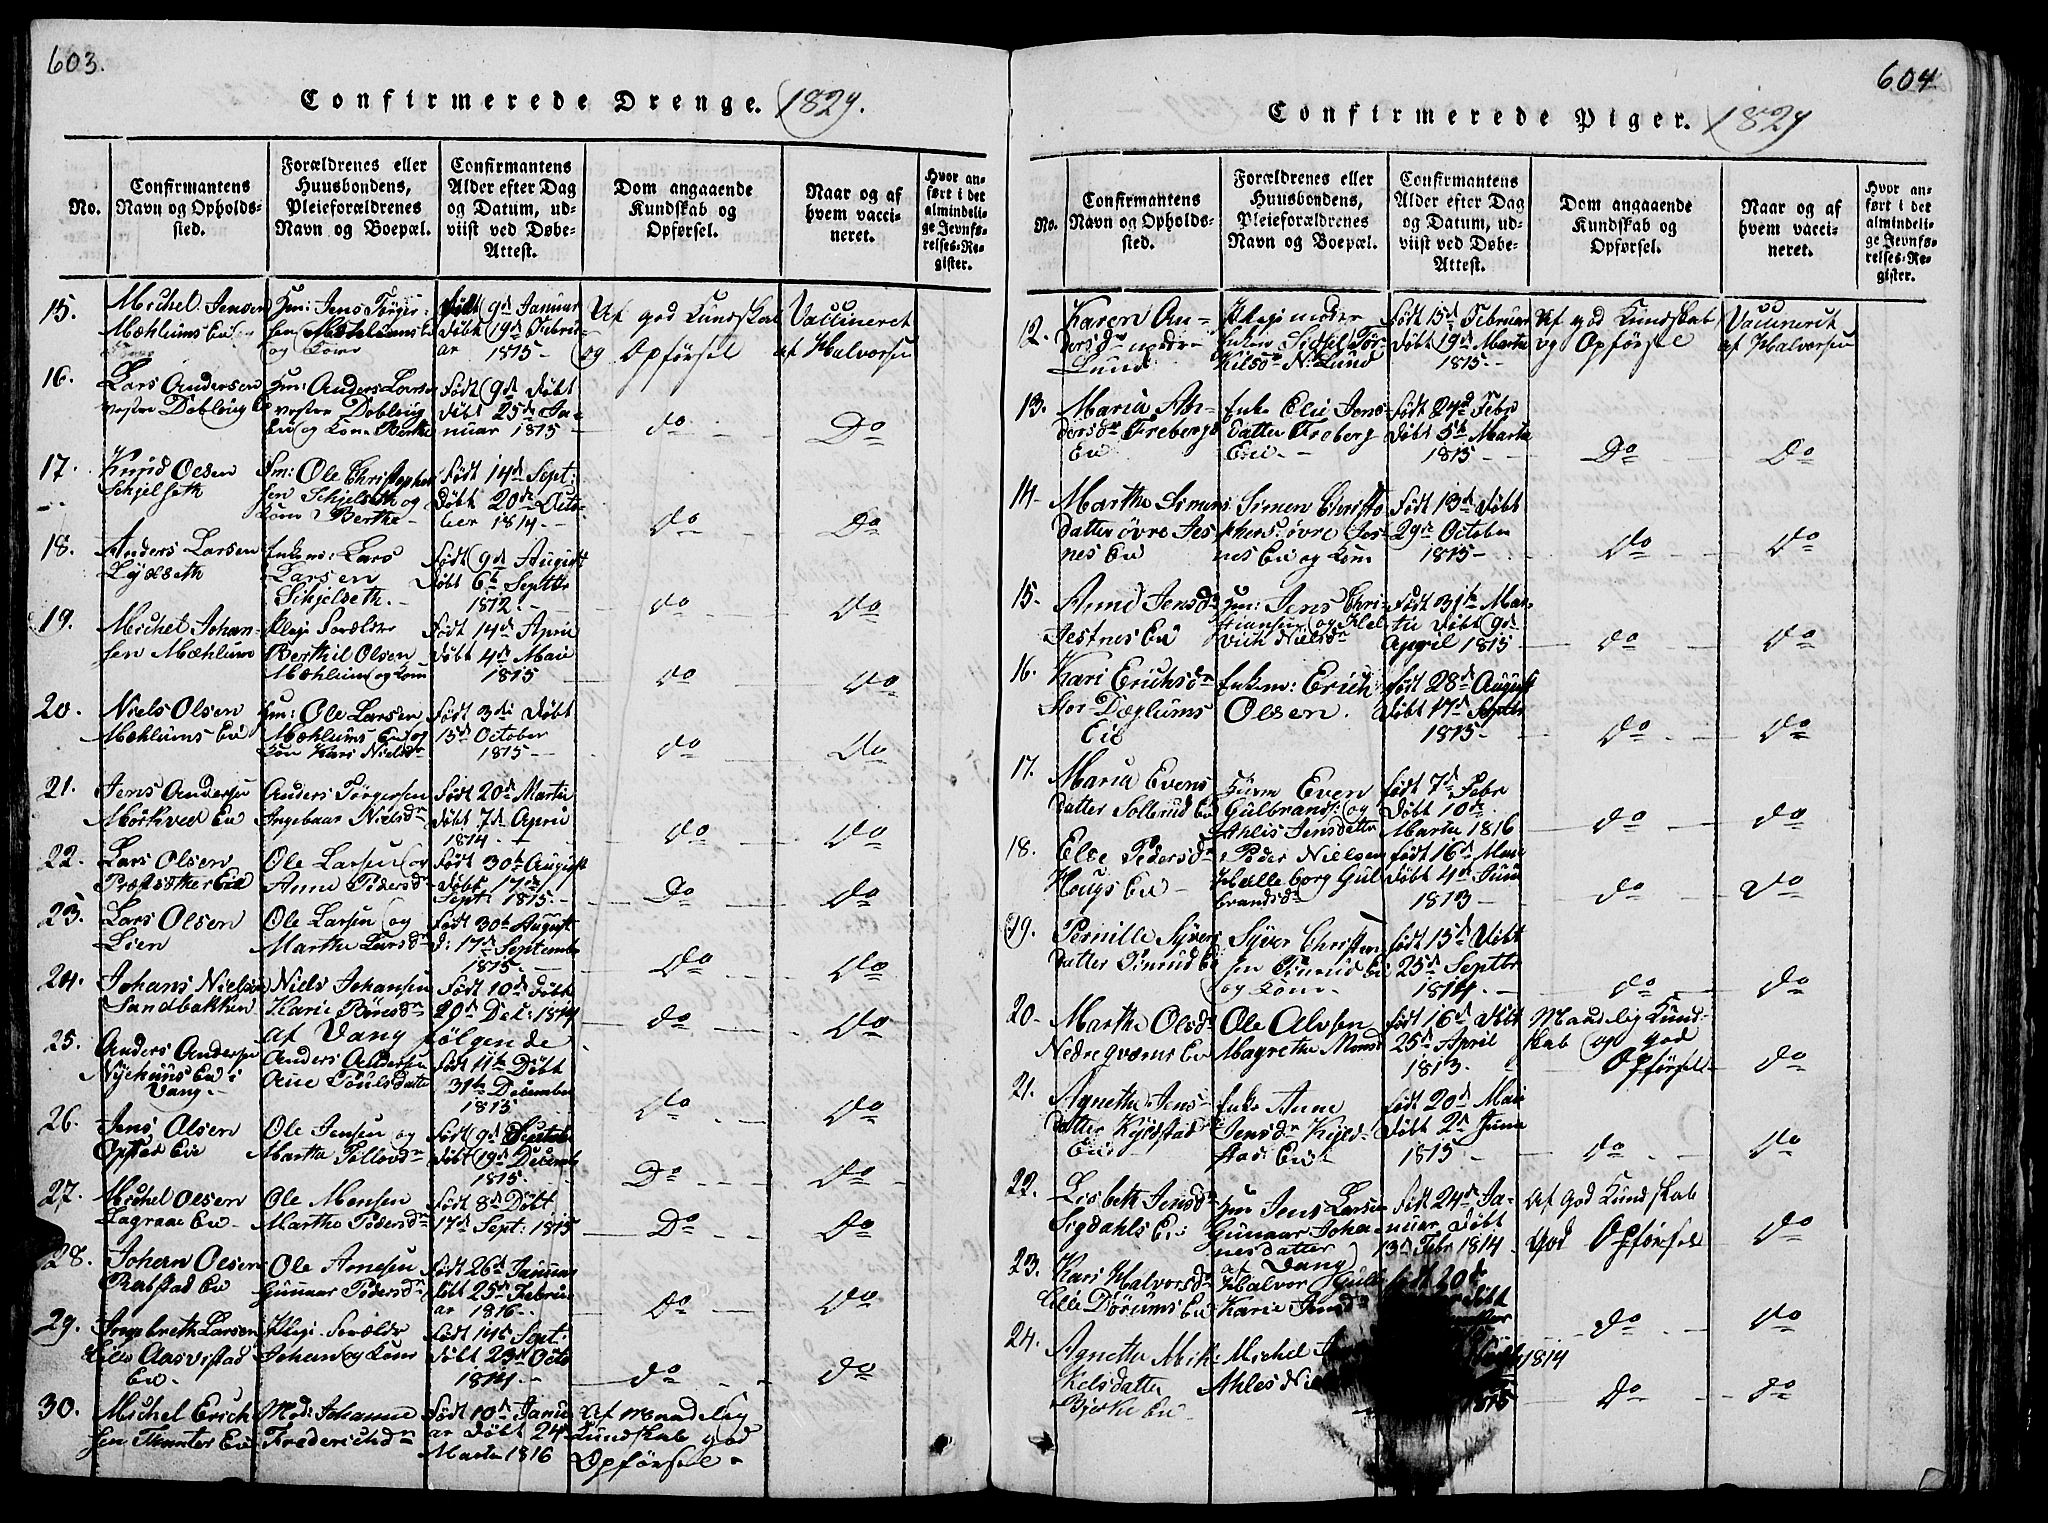 603.
Confirmerede Drenge. 1829.
No.
Confirmantens Navn og Opholds-sted.
Forældrenes eller Huusbondens, Pleieforældrenes Navn og Boepæl.
Confirmantens Alder efter Dag og Datum, ud-viist ved Døbe-Attest.
Dom angaaende Kundskab og Opførsel.
Naar og af hvem vacci-neret.
Hvor an-ført i det almindeli-ge Jevnfø-relses-Re-gister.
15.
Michel Jensen
Mæhlums Eie
Hm: Jens Törger-
sen Mæhlums E
og Kone
Född 9d Januar
Döbt 19d Febru
ar 1815
Af god Kundskab
og Opförsel
Vaccineret
af Halvorsen
16.
Lars Andersen
vestre Dobloug E
Hm: Anders Larsen
vestre Dobloug
Eie og Kone Berthe
Född 9d Döbt
25d Ja-
nuar 1815
do
Do
17.
Knud Olsen
Schjelseth
Hm: Ole Christopher
sen Schjelseth og
Kone Berthe
Född 14d Sept:
Döbt 20de Octo-
ber 1814
do
Do
18.
Anders Larsen
Lydseth
Enkem: Lars
Larsen
Schjelseth.
Född 9d August
Döbt 6t Septbr
1812.
do
Do
19.
Michel Johan-
sen Mæhlum
Pleje Forældre
Berthil Olsen
Mæhlum og Kone
Född 14d April
Döbt 4d Maii
1815
do
do
20.
Niels Olsen
Mæhlums Eie
Hm: Ole Larsen
Mæhlums Eie og
Kone Kari Nielsdr
Född 3di Döbt
15d October
1815
do
Do
21.
Jens Andersen
Mörkved Eie
Anders Törgersen
Ingebaar Nielsdr
Född 20d Martii
Döbt 7d April
1814
do
Do
22.
Lars Olsen
Præstsæther Eie
Ole Larsen og
Anne Pedersdr
Född 30t August
Döbt 17d
Sept: 1815.
Do
do
23.
Lars Olsen
Lien
Ole Larsen og
Marthe Larsdr
Född 30t August
D: 17d September
1815
Do
do
24.
Johans Nielsen
Sandbakken
Niels Johansen
Karie Pensdr
Född 10d Döbt
29d Dec: 1814
do
Do
af Vang fölgende
25.
Anders Andersen
Nyehuus Eie i
Vang.
Anders Andersen
Ane Poulsdatter
Född 11t Döbt
31te December
1813
do
do
26.
Jens Olsen
Opstad Eie
Ole Jensen og
Marthe Tollevsdr
Född 9d
Döbt 19d Decemb
1815.
Do
Do
27.
Michel Olsen
Lagraae Eie
Ole Monsen
Marthe Pedersdr
Född 8d Döbt
17d Sept: 1815
Do
Do
28.
Johan Olsen
Rabstad Eie
Ole Arnesen
Gunaar Pedersdr
Född 26d Januar
Döbt 25d Februa
ar 1816
Do
Do
29.
Ingebreth Larsen
Lille Aasvistad
Eie
Pleje Forældre
Johan og Kone
Född 14d Sept:
Döbt 23d Octo
1814
do
do
30.
Michel Erich-
sen Eie
Mod: Johanne
Frederichsdr
Född 10d Janu
ar Döbt 24
Martii 1816
Af maadelig
Kundskab god
Opförsel

604
Confirmerede Piger. 1829
No.
Confirmantens Navn og Opholds-sted.
Forældrenes eller Huusbondens, Pleieforældrenes Navn og Boepæl.
Confirmantens Alder efter Dag og Datum, ud-viist ved Døbe-Attest.
Dom angaaende Kundskab og Opførsel.
Naar og af hvem vacci-neret.
Hvor an-ført i det almindeli-ge Jevnfø-relses-Re-gister.
12.
Karen An-
dersdr nedre
Lund
Pleje moder
Enken Sidsel Tor-
Kilsdr N: Lund
Född 15d Februar
Döbt 19d Martii
1815.
Af god Kundskab
og Opförsel
Vaccineret
af Halvorsen
13.
Maria An-
dersdr Freberg
Eie
Enke Elie Jens
datter Freberg
Eie
Född 24d Febr
Döbt 5t Martii
1815
Do
Do
14.
Marthe Simens
datter övre Jes-
nes Eie
Simen Christo
phers: övre Jes-
nes Eie og Kone
Född 13d Döbt
29d October
1815
do
do
15.
Anne Jensdr
Jesnes Eie
Hm: Jens Chri-
stiansen og Hel
vich Nielsdr
Född 31t Mar-
tii Döbt 9d
April 1815
do
do
16.
Kari Erichsdr
Stor Dæglums
Eie
Enkem: Erich
Olsen.
Född 28d August
Döbt 17d Septbr
1815
do
do
17.
Maria Evens
datter Sollerud Eie
Huusm Even
Gulbrands: og
Ahlis Jensdatter
Född 7d Febr
Döbt 10de
Martii 1816
do
do
18.
Else Pedersdr
Hougs Eie
Peder Nielsen
Helleborg Gul
brandsdr
Född 16d Maii
Döbt 4d Junii
1813
do
do
19.
Pernille Syvers
datter Finrud Eie
Syver Christen
sen Finrud Eie
og Kone
Född 15d Döbt
25d Septbr
1814.
do
do
20.
Marthe Olsdr
Nedre Eie
Ole Alvsen
Magrethe Monsd
Född 16d Döbt
25d April
1813.
Maadelig Kund-
skab og god
Opförsel
do
21.
Agnethe Jens-
datter Kyelstad
Eie
Enke Anne
Jensdr Kyels-
stad Eie
Född 20d Maii
Döbt 2d Junii
1815
do
do
22.
Lisbeth Jensdr
Sigdahls Eie
Hm Jens Larsen
Gunaar Johan-
nesdatter
Född 24d Ja-
nuar Döbt
13d Febr 1814
Af god Kundskab
god Opförsel
do
af Vang
23.
Kari Halvorsdr
Lille Dörums Eie
Halvor
Karie Jensd
Född 20d
Döbt
do
do
24.
Agnethe Mik-
kelsdatter
Bjerke Eie
Michel
Ahles
1814
1815
do
do